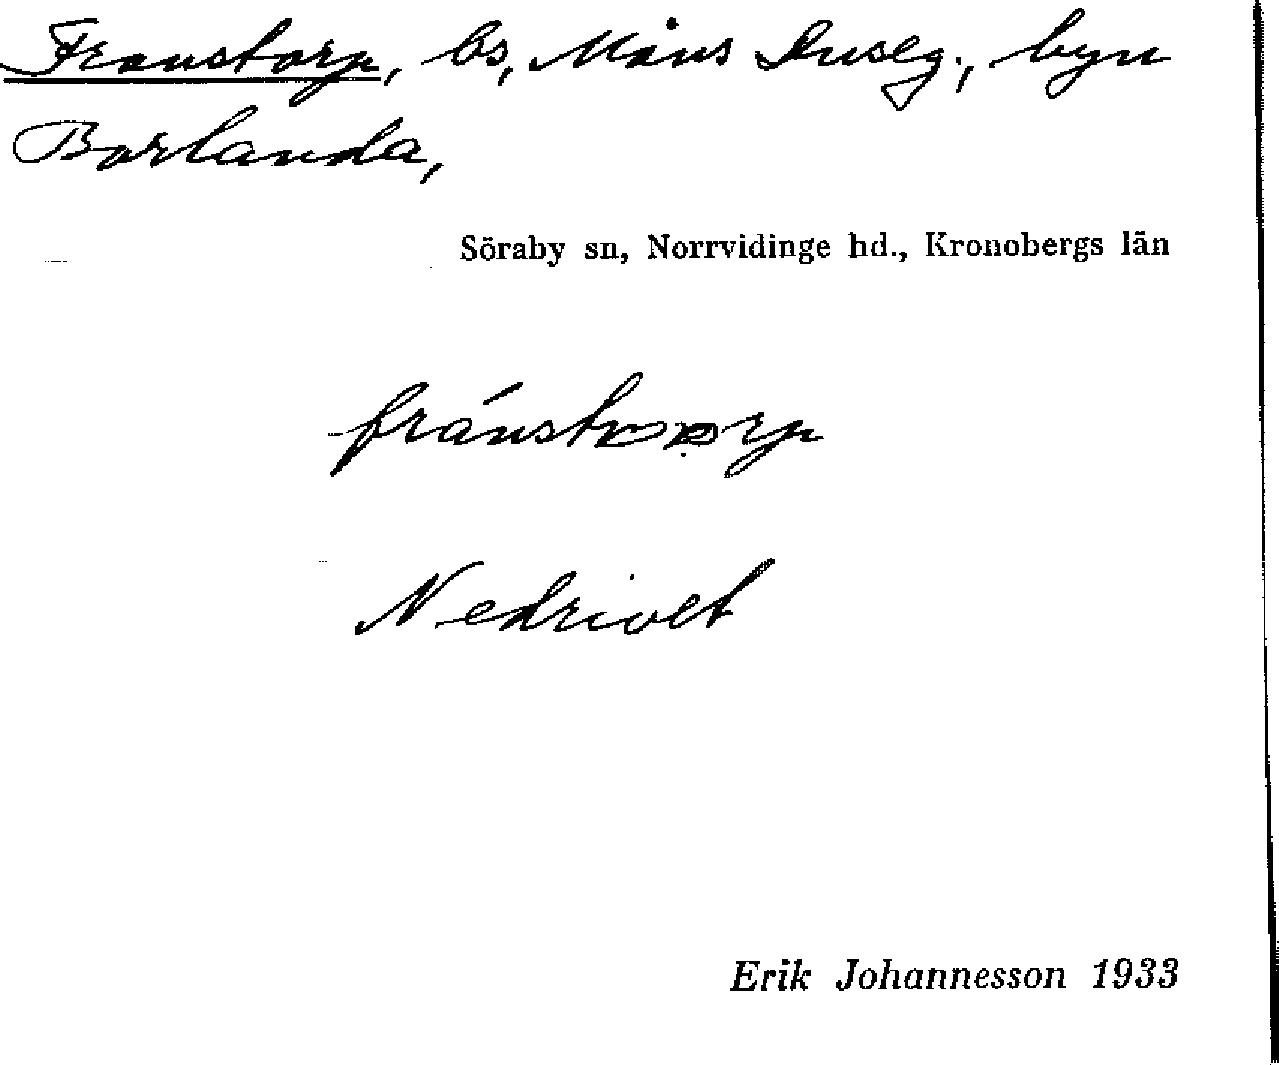 Franstorp, bs, Måns Inseg., byn
Borlanda,
Söraby sn, Norrvidinge hd., Kronobergs län
Nedrivet
Erik Johannesson 1933